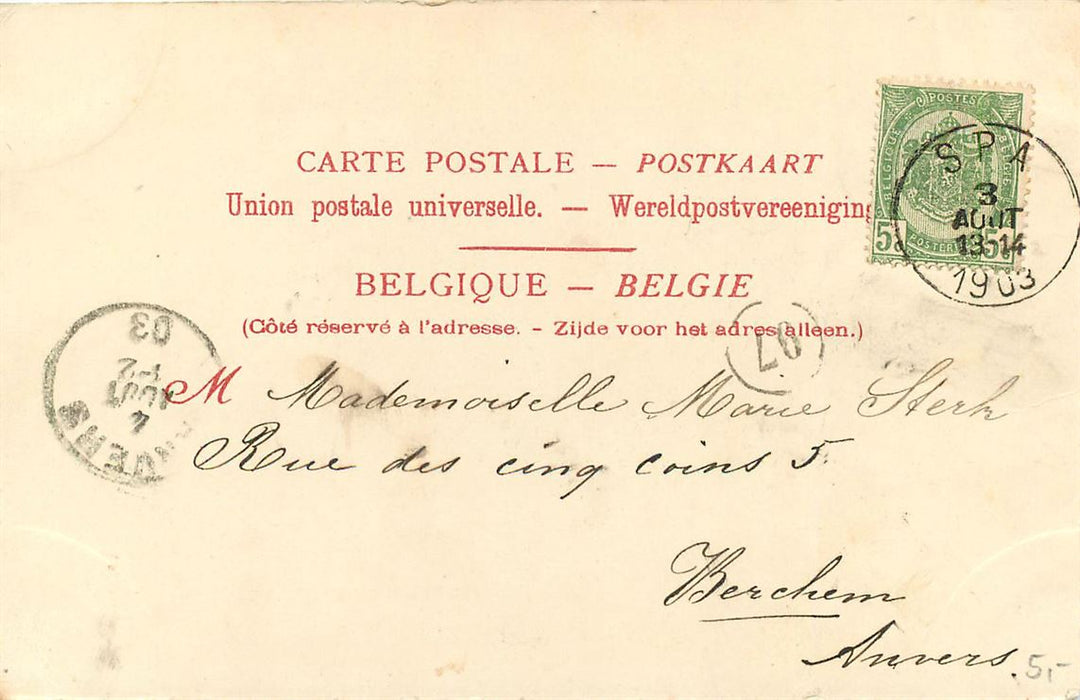 CARTE POSTALE — POSTKAART
Union postale universelle. — Wereldpostvereeniging
BELGIQUE — BELGIE
(Côté réservé à l'adresse. - Zijde voor het adres alleen.)
POSTES
BELGIQUE
5c 5c
SPA
3
AOUT
13-14
1903
70
03
4
M Mademoiselle Marie Sterk
Rue des cinq coins 5.
Berchem
Anvers.
5,-